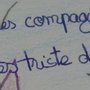 es compag
est triste d